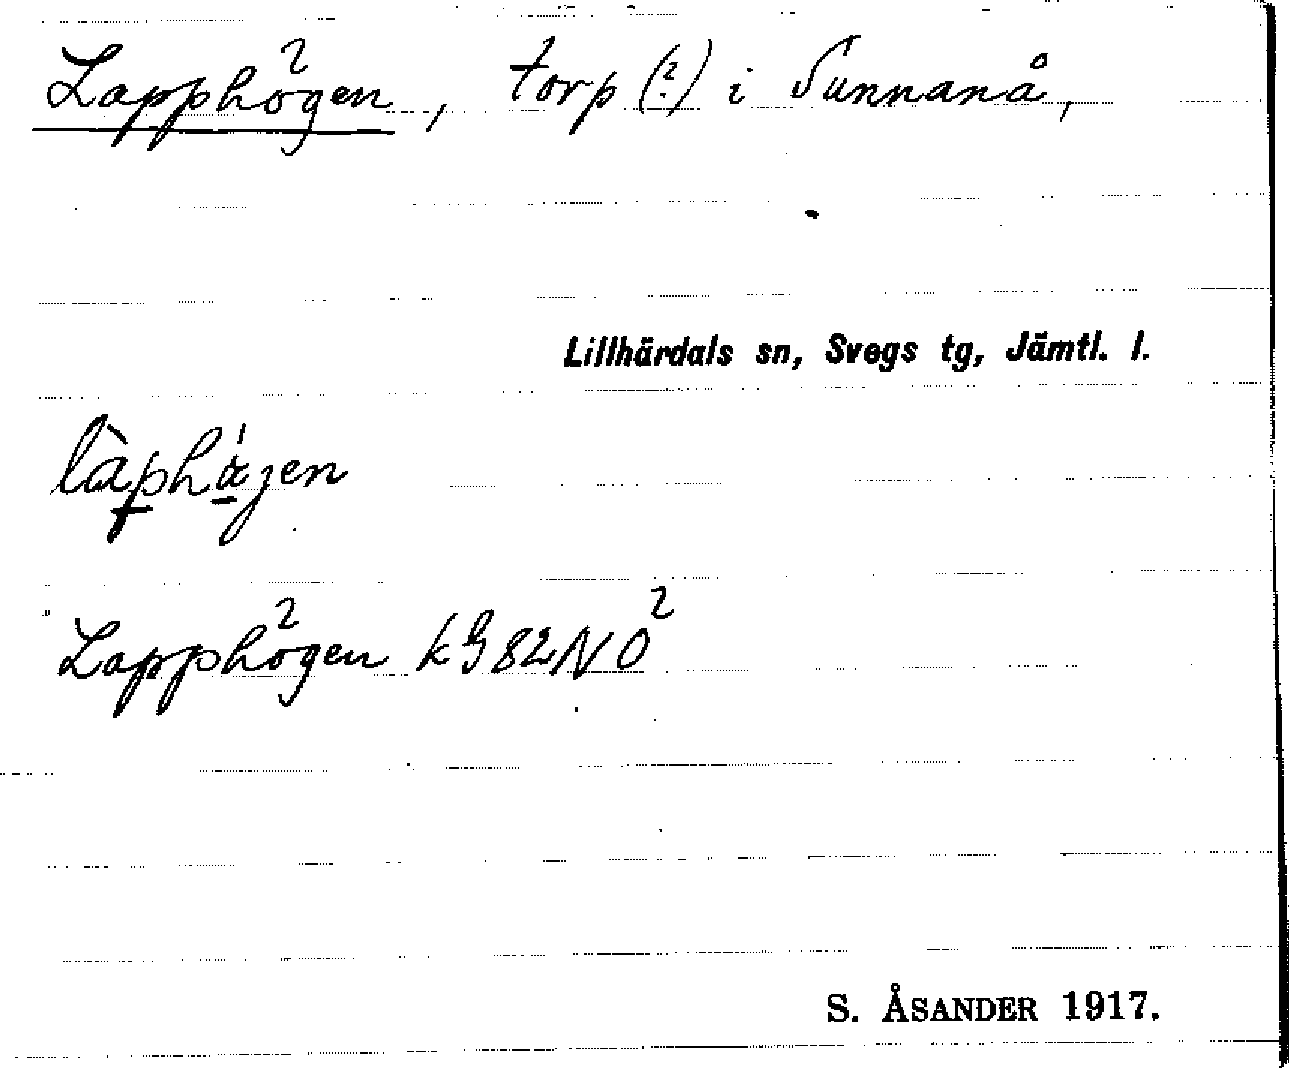 Lapphögen, torp (?) i Sunnanå,
Lillhärdals sn, Svegs tg, Jämtl. l.
Lapphögen kG 82NO²
S. ÅSANDER 1917.